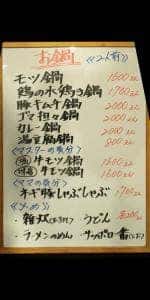 お鍋
《2人前》
モツ鍋 1600えん
鶏の水炊き鍋 1700えん
豚キムチ鍋 2000えん
ゴマ担々鍋 2000えん
カレー鍋 2000えん
湯豆腐鍋 800えん
《マスターの気分》
牛モツ鍋 1600えん
牛モツ鍋 1600えん
《ママの気分》
ネギ豚しゃぶしゃぶ 1700えん
《シメ》
・雑炊 ・うどん 各200えん
・ラーメンのめん ・サッポロ一番